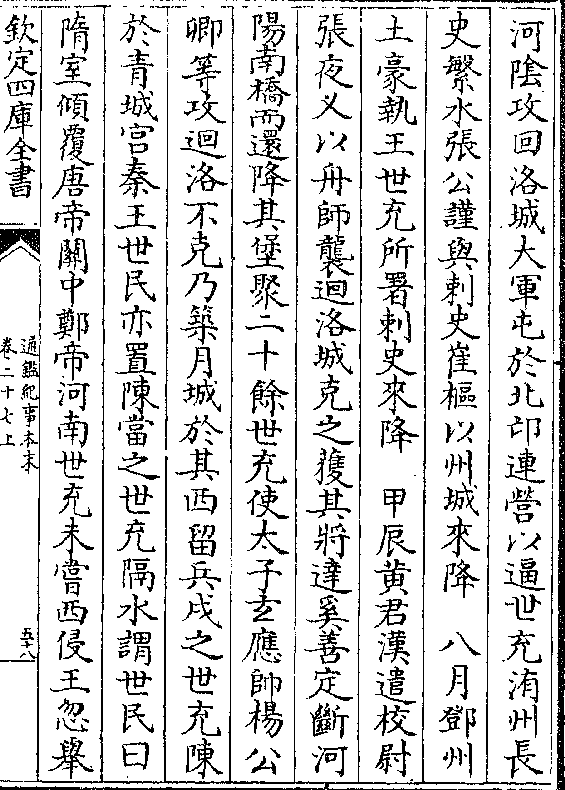 河陰攻回洛城大軍屯於北邙連營以逼世充洧州長
史繁水張公謹與刺史崔樞以州城來降　八月鄧州
土豪執王世充所署刺史來降　甲辰黄君漢遣校尉
張夜义以舟師襲迴洛城克之䕶其將達奚善定斷河
陽南橋而還降其堡聚二十餘世充使太子𤣥應帥楊公
卿等攻迴洛不克乃築月城於其西留兵戍之世充陳
於青城宮秦王世民亦置陳當之世充隔水謂世民曰
隋室傾覆唐帝關中鄭帝河南世充未嘗西侵王忽舉
欽定四庫全書
通鑑紀事本末
卷二十七上
五十八